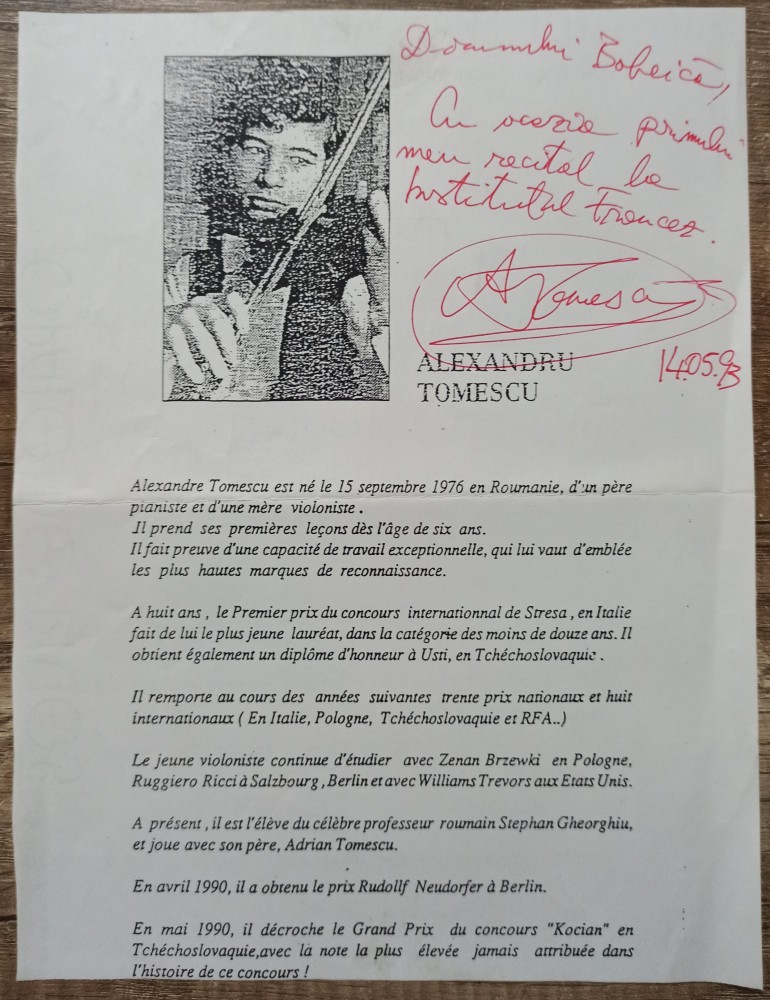 Domnului Bobeică,
Cu ocazia primului
meu recital la
Institutul Francez.
A Tomescu
14.05.93
ALEXANDRU
TOMESCU
Alexandre Tomescu est né le 15 septembre 1976 en Roumanie, d'un père
pianiste et d'une mère violoniste .
Il prend ses premières leçons dès l'âge de six ans.
Il fait preuve d'une capacité de travail exceptionnelle, qui lui vaut d'emblée
les plus hautes marques de reconnaissance.
A huit ans , le Premier prix du concours internationnal de Stresa , en Italie
fait de lui le plus jeune lauréat, dans la catégorie des moins de douze ans. Il
obtient également un diplôme d'honneur à Usti, en Tchéchoslovaquie .
Il remporte au cours des années suivantes trente prix nationaux et huit
internationaux ( En Italie, Pologne, Tchéchoslovaquie et RFA..)
Le jeune violoniste continue d'étudier avec Zenan Brzewki en Pologne,
Ruggiero Ricci à Salzbourg , Berlin et avec Williams Trevors aux Etats Unis.
A présent , il est l'élève du célèbre professeur roumain Stephan Gheorghiu,
et joue avec son père, Adrian Tomescu.
En avril 1990, il a obtenu le prix Rudollf Neudorfer à Berlin.
En mai 1990, il décroche le Grand Prix du concours "Kocian" en
Tchéchoslovaquie,avec la note la plus élevée jamais attribuée dans
l'histoire de ce concours !